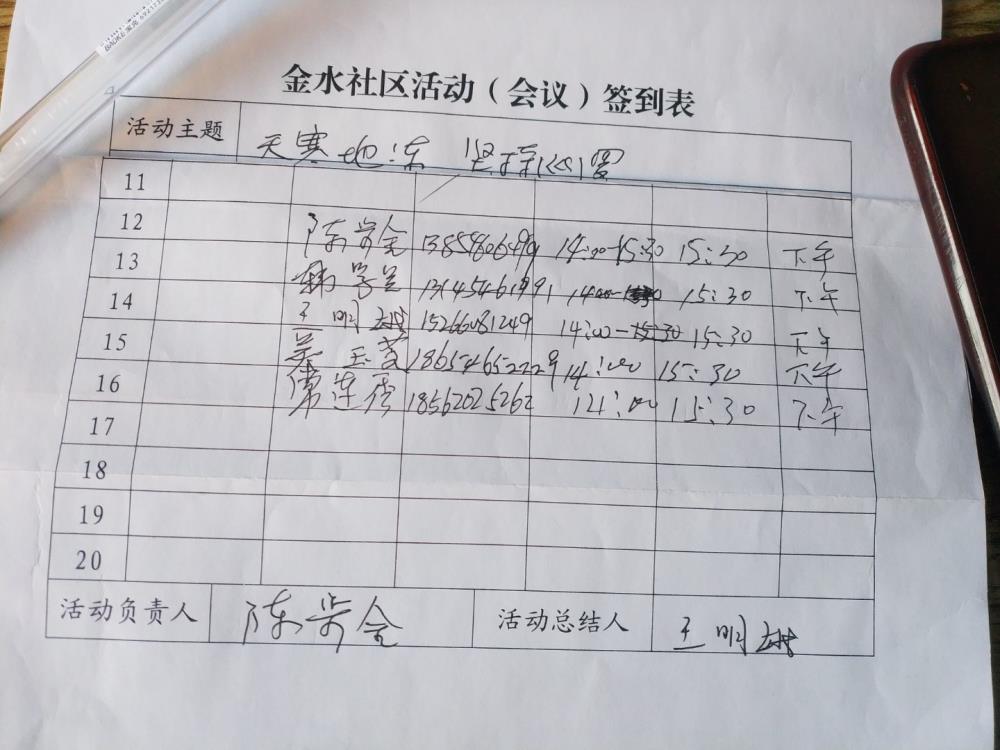 BAOKE 宝克
金水社区活动（会议）签到表
活动主题 天寒地冻 坚持巡逻
11
12 陈学金 13854606499 14:00-15:30 15:30 下午
13 韩学兰 13145461991 14:00 15:30 下午
14 王明 15266081249 14:00-15:30 15:30 下午
15 吴玉芝 18654652229 14:00 15:30 下午
16 常连香 18562025262 14:00 15:30 下午
17
18
19
20
活动负责人 陈学金 活动总结人 王明